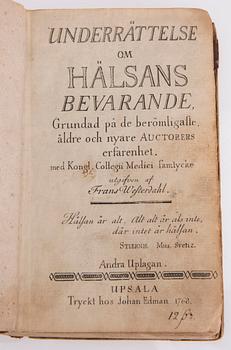 UNDERRÄTTELSE
OM
HÄLSANS
BEVARANDE,
Grundad på de berömligaste,
äldre och nyare AUCTORERS
erfarenhet,
med Kongl. Collegii Medici samtycke
utgifven af
Frans Westerdahl.
Hälsan är alt, Alt alt är als inte,
där intet är hälsan.
STIERNH. Mus. Svetiz.
Andra Uplagan.
UPSALA
Tryckt hos Johan Edman, 1768.